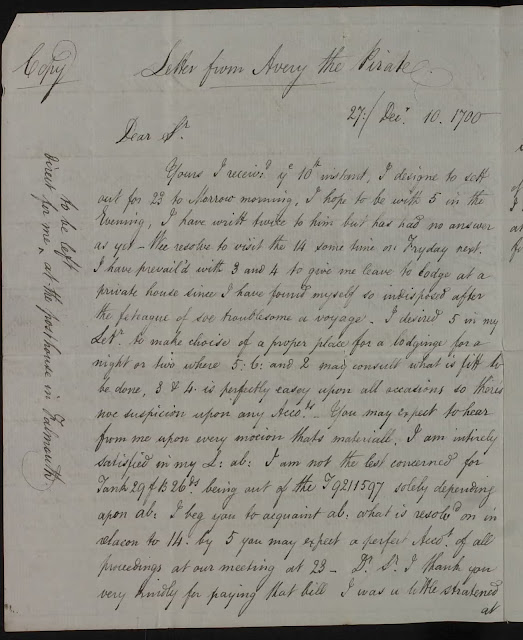 (Copy)
Letter from Avery the Pirate.
27:/ Decr. 10. 1700
Dear Sr.
Yours I receivd. ye 10th instant, I designe to sett
out for 23 to Morrow morning, I hope to be with 5 in the
Evening, I have writt twice to him but has had no answer
as yet – Wee resolve to visit the 14 some time on Fryday next.
I have prevail'd with 3 and 4 to give me leave to lodge at a
private house since I have found myself so indisposed after
the feteague of soe troublesome a voyage. I desired 5 in my
Letr. to make choise of a proper place for a lodginge for a
night or two where 5: 6: and 2 may consult what is fitt to
be done, 3 & 4 is perfectly easey upon all occasions so theres
noe suspicion upon any Acctts. You may expect to hear
from me upon every mocion thats materiall. I am intirely
satisfied in my L: ab: I am not the lest concerned for
Tank 29 f B 26ds being out of the T9211597 solely depending
upon ab: I beg you to acquaint ab: what is resolvd on in
relacon to 14. by 5 you may expect a perfer Acct. of all
proceedings at our meeting at 23 – Dr. Sr. I thank you
very kindly for paying that bill I was a little stratened
at
direct for me ^ at the posthouse in Falmouth
to be left